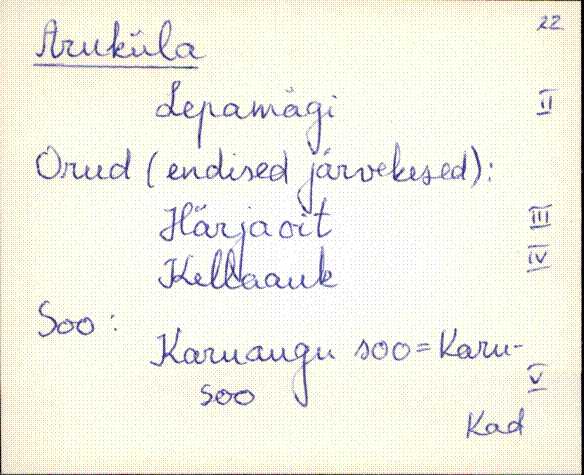 22
Aruküla
Lepamägi II
Orud (endised järvekesed):
Härjaoit III
Kellaauk IV
Soo:
Karuaugu soo = Karu-
soo V
Kad